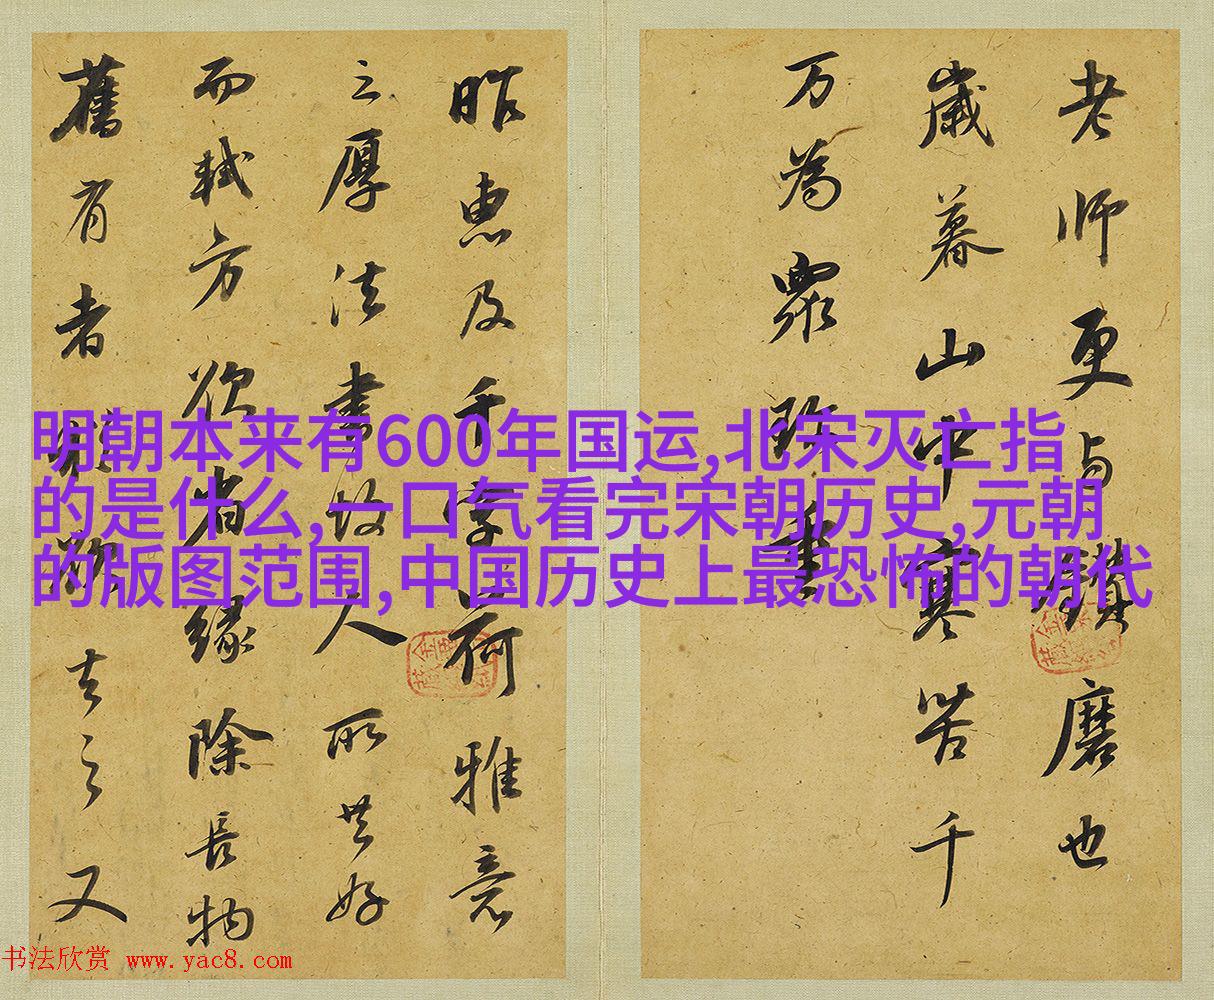 老師更与鑽磨也
歲暮山中寒苦千
万為眾珎重
昨惠及千字荷雅意
之厚法書故人所共好
而軾方欲省緣除長物
舊有者猶欲去之又
明朝本来有600年国运,北宋灭亡指
的是什么,一口气看完宋朝历史,元朝
的版图范围,中国历史上最恐怖的朝代
书法欣赏 www.yac8.com